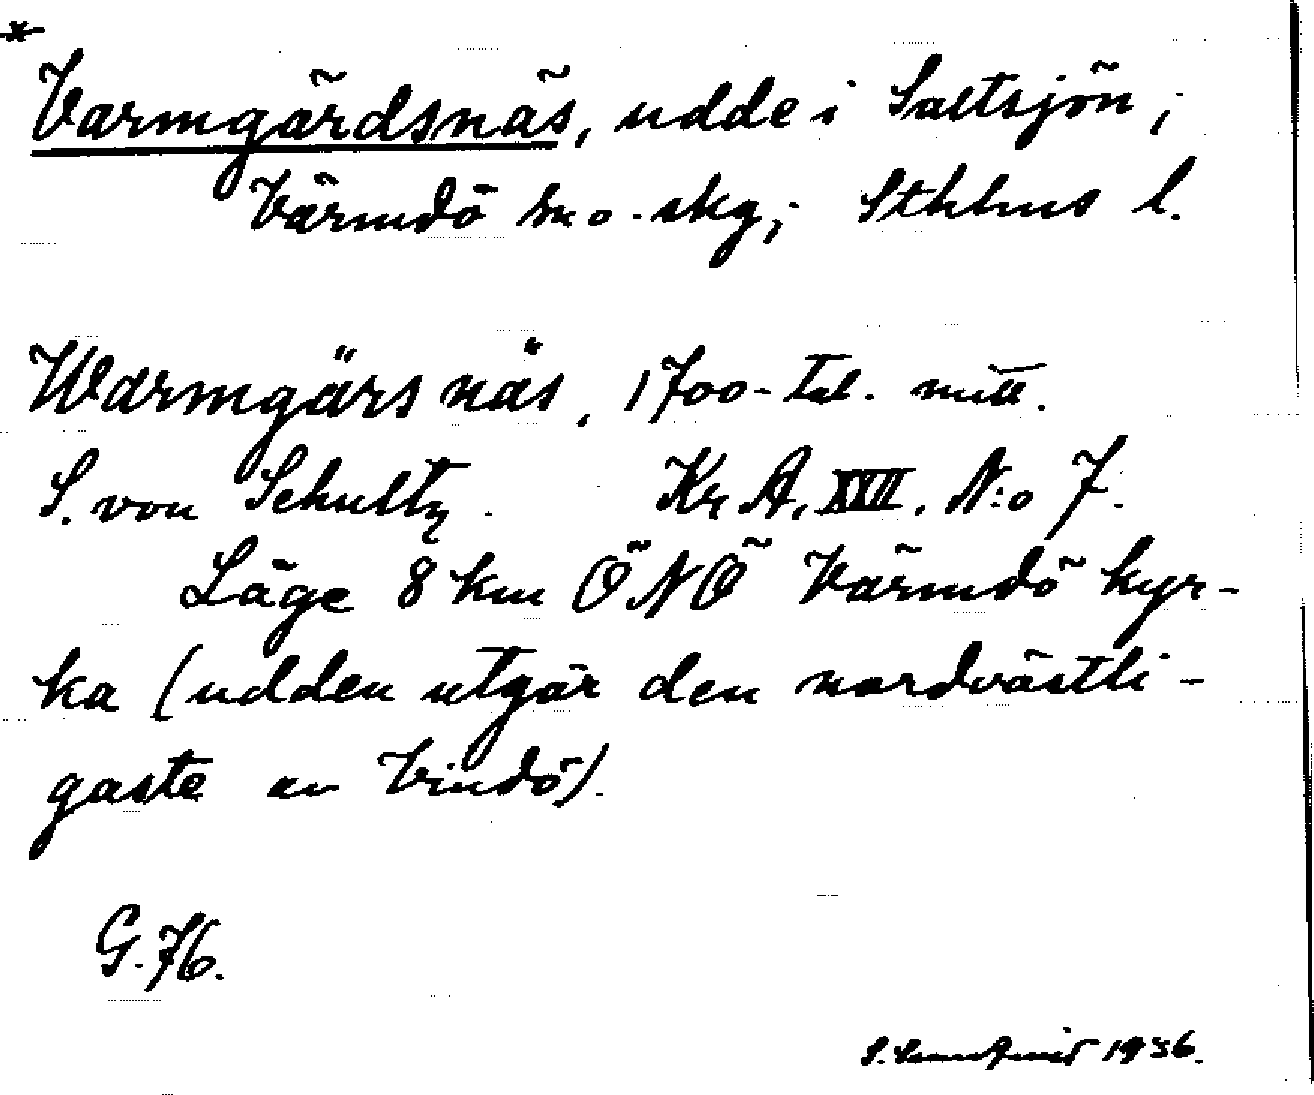 Varmgärdsnäs, udde i Saltsjön;
Värmdö sn o. skg; Sthlms l.
Warmgärs näs, 1700-tal. mitt.
S. von Schultz. Kr A, XVII. N:o 7.
Läge 8 km ÖNÖ Värmdö kyr-
ka (udden utgör den nordvästli-
gaste av Vindö).
G. 76.
1936.